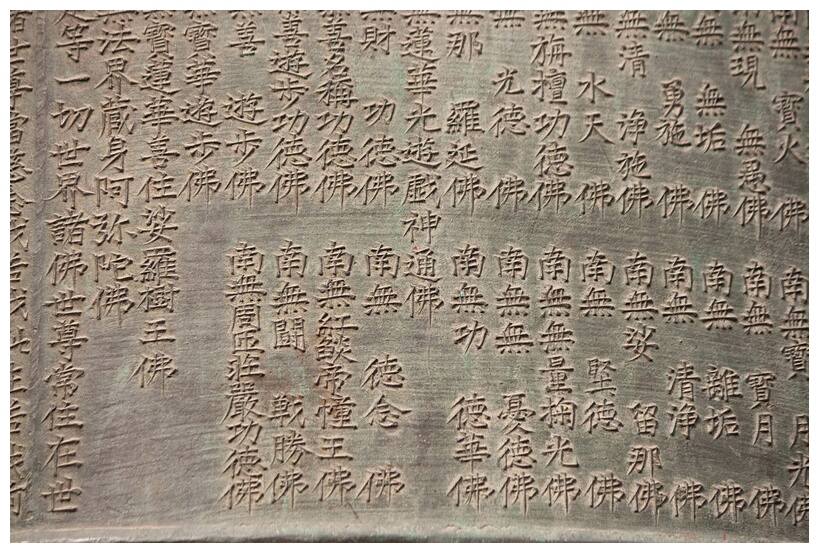 南無寶火佛
南無寶月光佛
無現無愚佛
南無寶月佛
無無垢佛
南無離垢佛
無勇施佛
南無清淨佛
無清淨施佛
南無娑留那佛
無水天佛
南無堅德佛
無旃檀功德佛
南無無量掬光佛
無光德佛
南無無憂德佛
無那羅延佛
南無功德華佛
無蓮華光遊戲神通佛
無財功德佛
南無德念佛
善名稱功德佛
南無紅燄帝幢王佛
善遊步功德佛
南無鬬戰勝佛
善遊步佛
南無周匝莊嚴功德佛
寶華遊步佛
寶蓮華善住娑羅樹王佛
無法界藏身阿弥陀佛
是等一切世界諸佛世尊常住在世